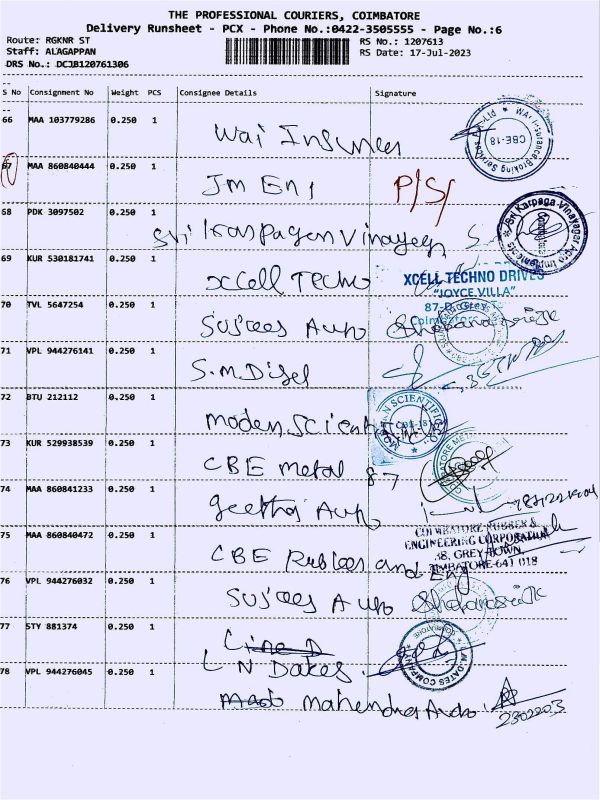 THE PROFESSIONAL COURIERS, COIMBATORE
Delivery Runsheet - PCX - Phone No.:0422-3505555 - Page No.:6
Route: RGKNR ST
RS No.: 1207613
Staff: ALAGAPPAN
RS Date: 17-Jul-2023
DRS No.: DCJB120761306
S No Consignment No Weight PCS Consignee Details Signature
66 MAA 103779286 0.250 1 Wai Insurnces
CBE-18
67 MAA 860840444 0.250 1 Jm Eni P/S/
68 PDK 3097502 0.250 1 Sri Karpagam Vinayega
Sri Karpaga Vinayagar Agro Implements
69 KUR 530181741 0.250 1 Xcell Techno
XCELL TECHNO DRIVES
"JOYCE VILLA"
70 TVL 5647254 0.250 1 Auto
71 VPL 944276141 0.250 1 S.M.Disel
72 BTU 212112 0.250 1 Modern Scientific
CBE-18
73 KUR 529938539 0.250 1 CBE metal 87
COIMBATORE METAL
74 MAA 860841233 0.250 1 Geetha Auto
75 MAA 860840472 0.250 1 CBE Rubber and Eng
COIMBATORE RUBBER &
ENGINEERING CORPORATION
48, GREY TOWN
COIMBATORE-641 018
76 VPL 944276032 0.250 1 Auto
77 STY 881374 0.250 1 L N Dates
DATES COMPANY
78 VPL 944276045 0.250 1 Mahendra Auto